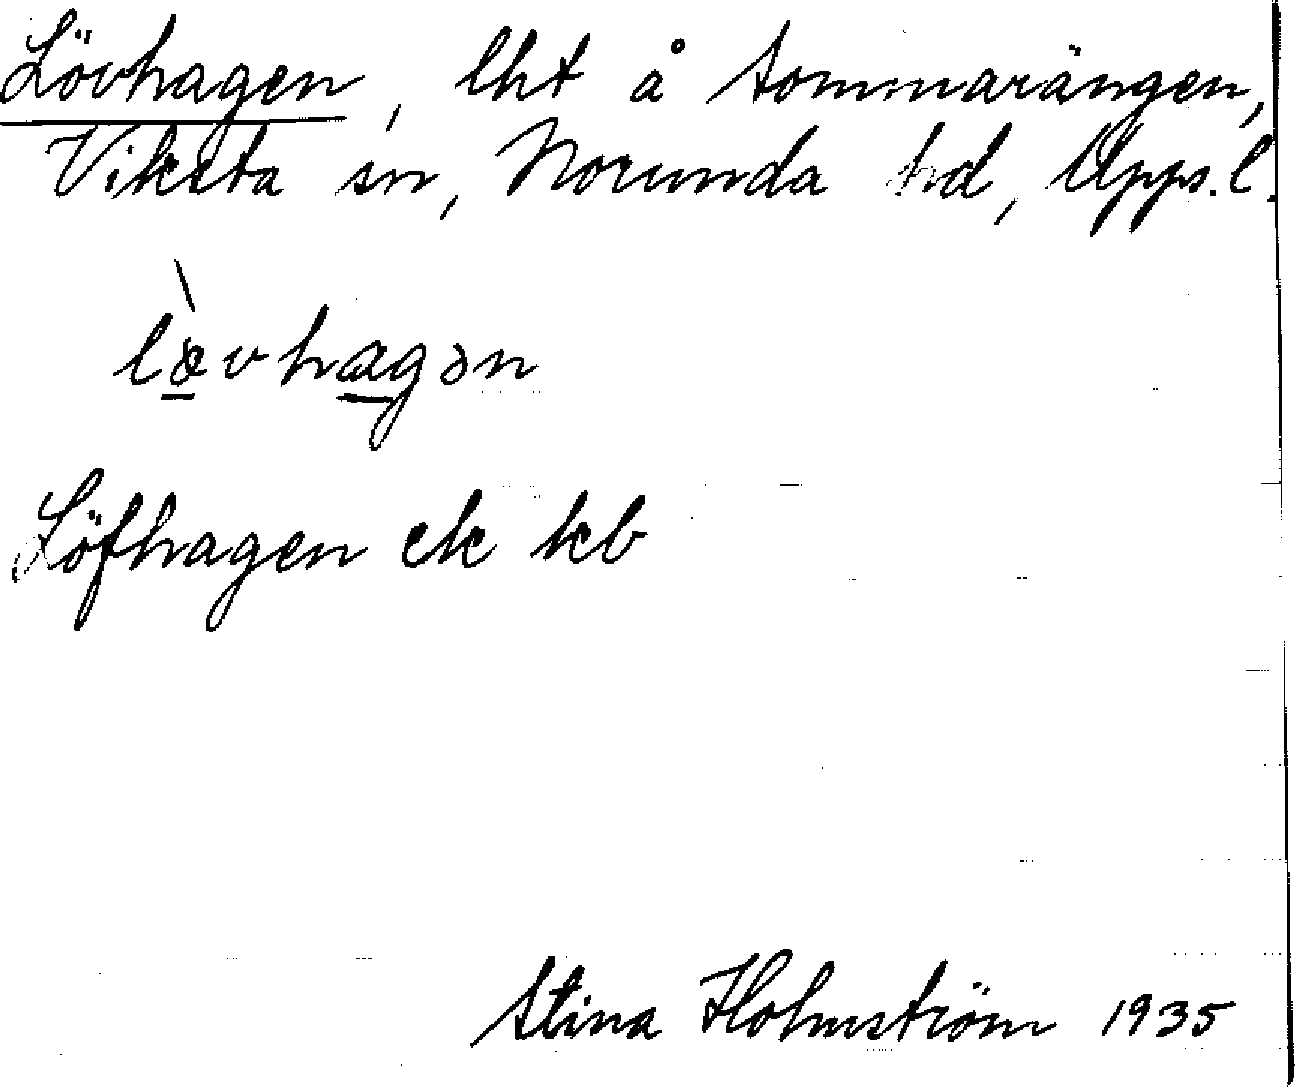 Lövhagen, lht å Sommarängen,
Viksta sn, Norunda hd, Upps. l.
lø̀vhagən
Löfhagen ek kb
Stina Holmström 1935